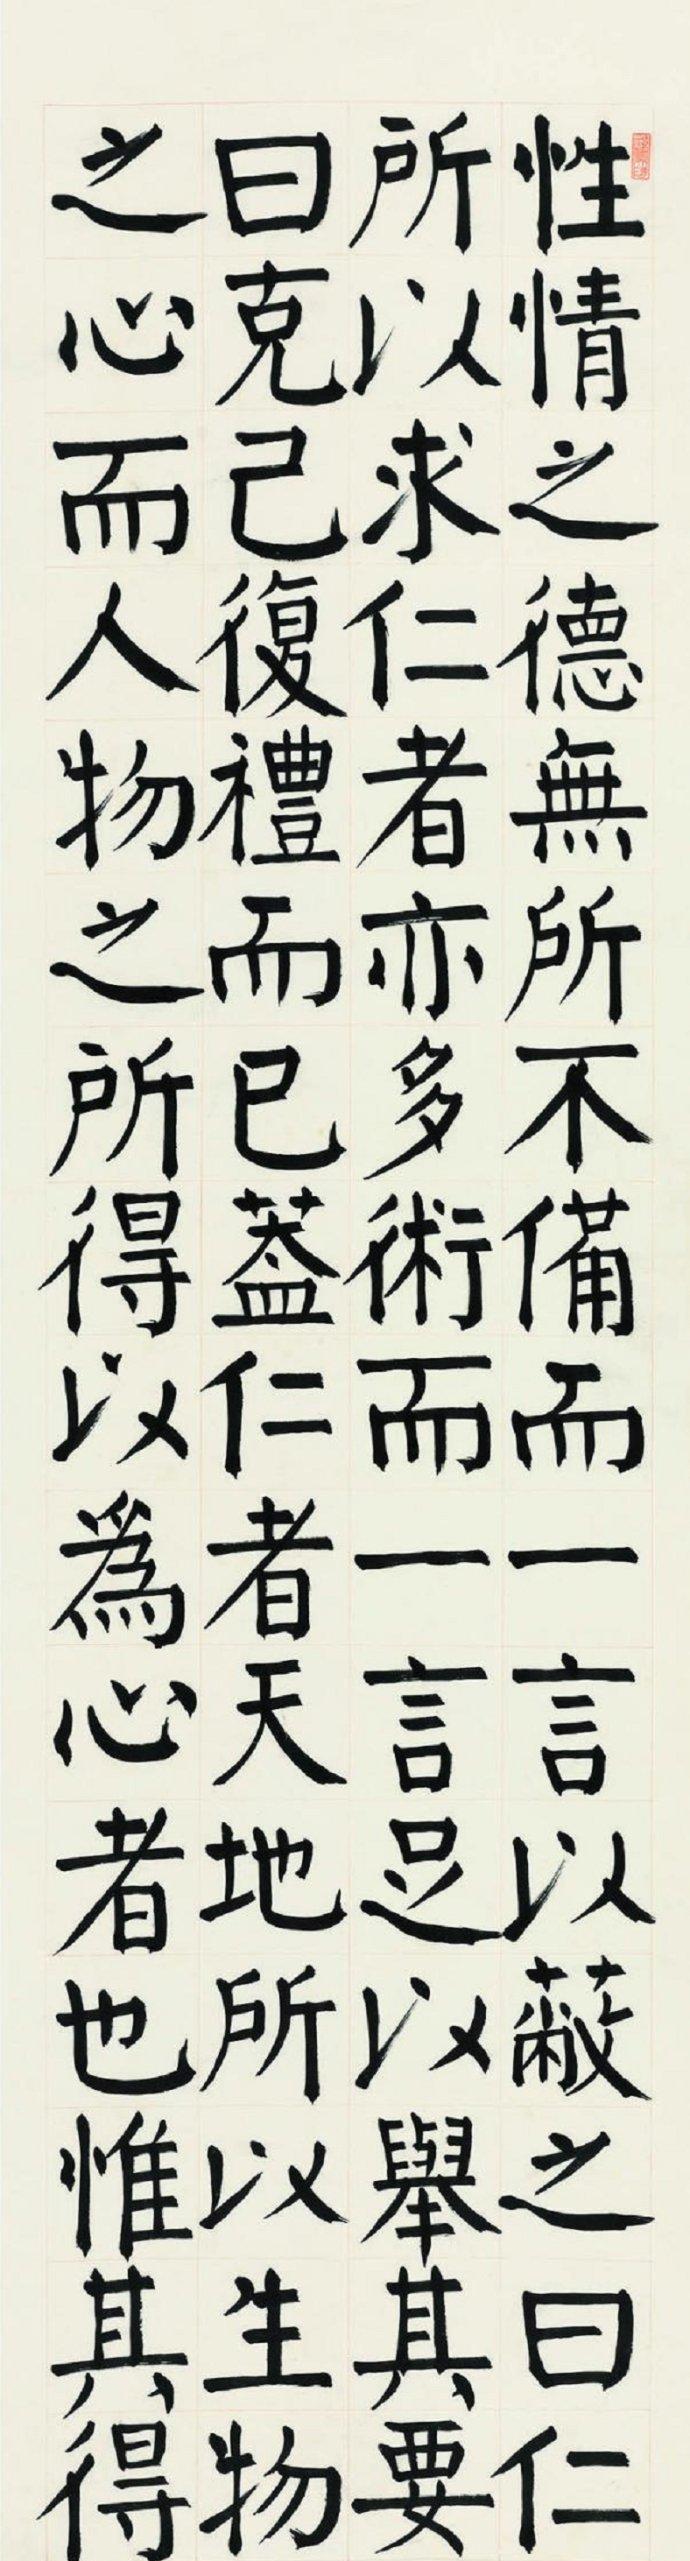 性情之德無所不備而一言以蔽之曰仁
所以求仁者亦多術而一言足以舉其要
曰克己復禮而已蓋仁者天地所以生物
之心而人物之所得以為心者也惟其得